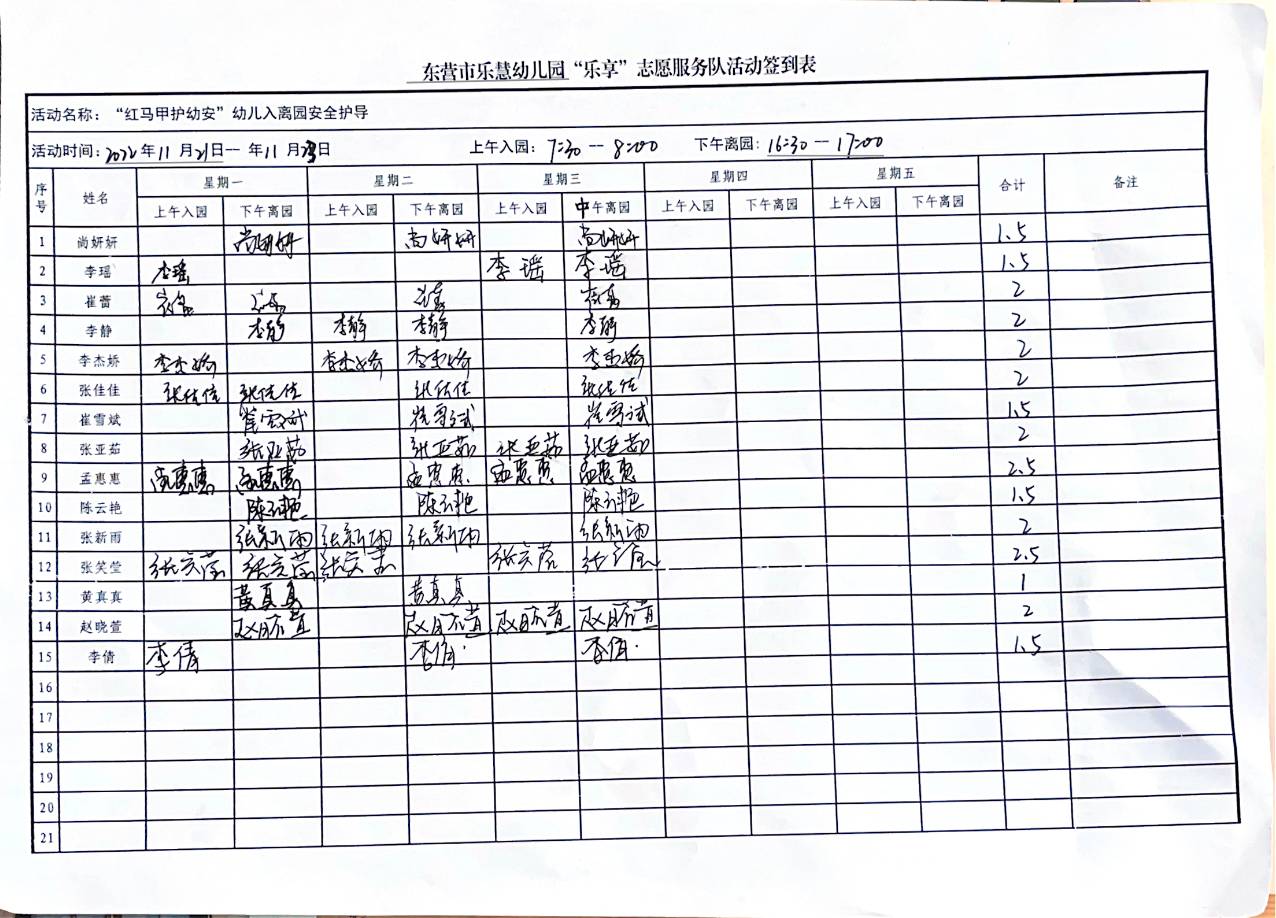 东营市乐慧幼儿园“乐享”志愿服务队活动签到表
活动名称：“红马甲护幼安”幼儿入离园安全护导
活动时间：2022年11月21日--年11月23日 上午入园：7:30--8:00 下午离园：16:30--17:00
序号 姓名 星期一 星期二 星期三 星期四 星期五 合计 备注
上午入园 下午离园 上午入园 下午离园 上午入园 中午离园 上午入园 下午离园 上午入园 下午离园
1 尚妍妍 尚妍妍 尚妍妍 尚妍妍 1.5
2 李瑶 李瑶 李瑶 李瑶 1.5
3 崔蕾 崔蕾 崔蕾 崔蕾 崔蕾 2
4 李静 李静 李静 李静 李静 2
5 李杰娇 李杰娇 李杰娇 李杰娇 李杰娇 2
6 张佳佳 张佳佳 张佳佳 张佳佳 张佳佳 2
7 崔雪斌 崔雪斌 崔雪斌 崔雪斌 1.5
8 张亚茹 张亚茹 张亚茹 张亚茹 张亚茹 2
9 孟惠惠 孟惠惠 孟惠惠 孟惠惠 孟惠惠 孟惠惠 2.5
10 陈云艳 陈云艳 陈云艳 陈云艳 1.5
11 张新雨 张新雨 张新雨 张新雨 张新雨 2
12 张笑莹 张笑莹 张笑莹 张笑莹 张笑莹 张笑莹 2.5
13 黄真真 黄真真 黄真真 1
14 赵晓萱 赵晓萱 赵晓萱 赵晓萱 赵晓萱 2
15 李倩 李倩 李倩 李倩 1.5
16
17
18
19
20
21